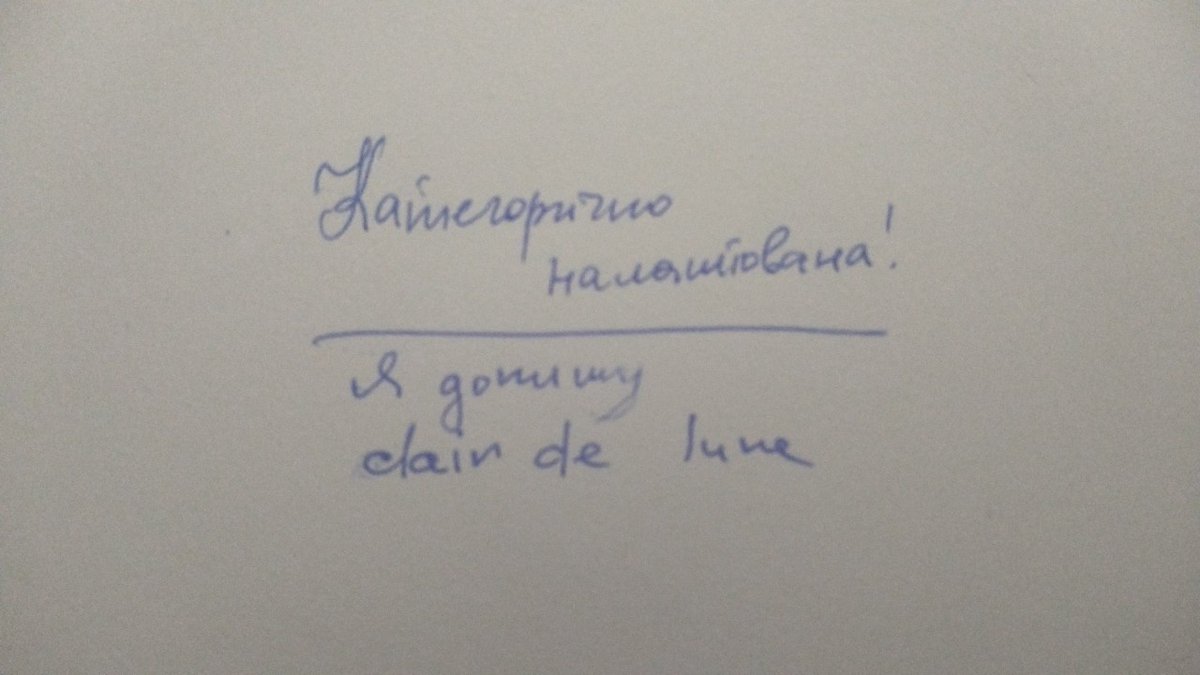 Категорічно
налаштована!
Я допишу
clair de lune